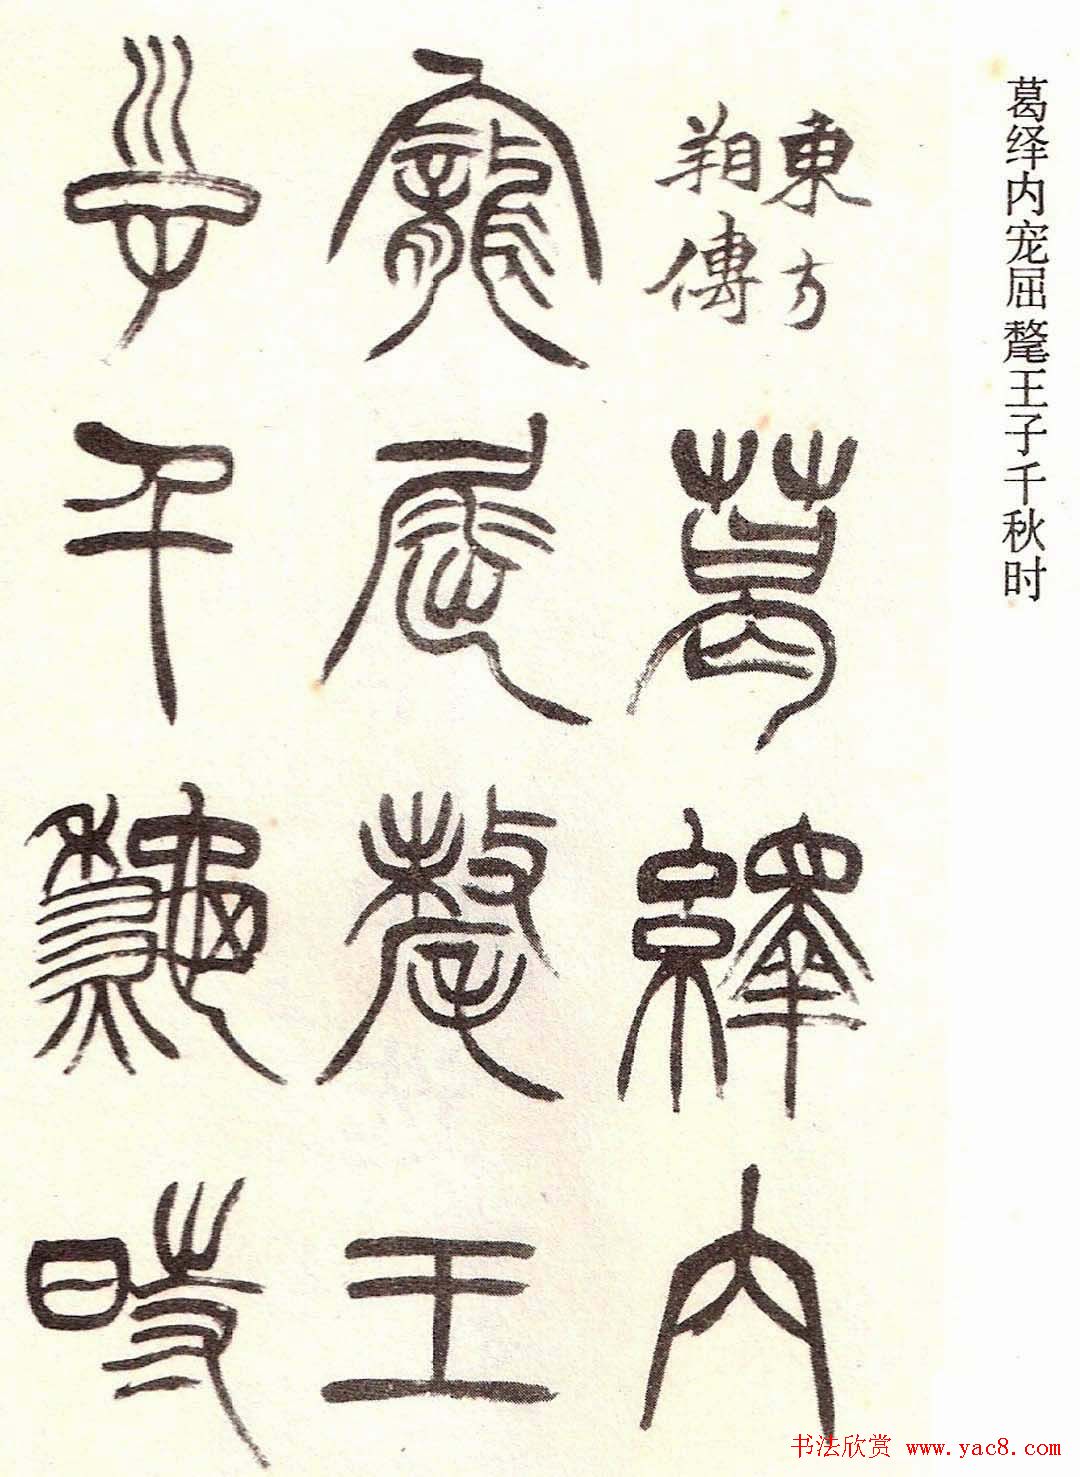 葛绎内宠屈氂王子千秋时
東方
朔傳
葛繹内
寵屈氂王
子千龝時
书法欣赏 www.yac8.com